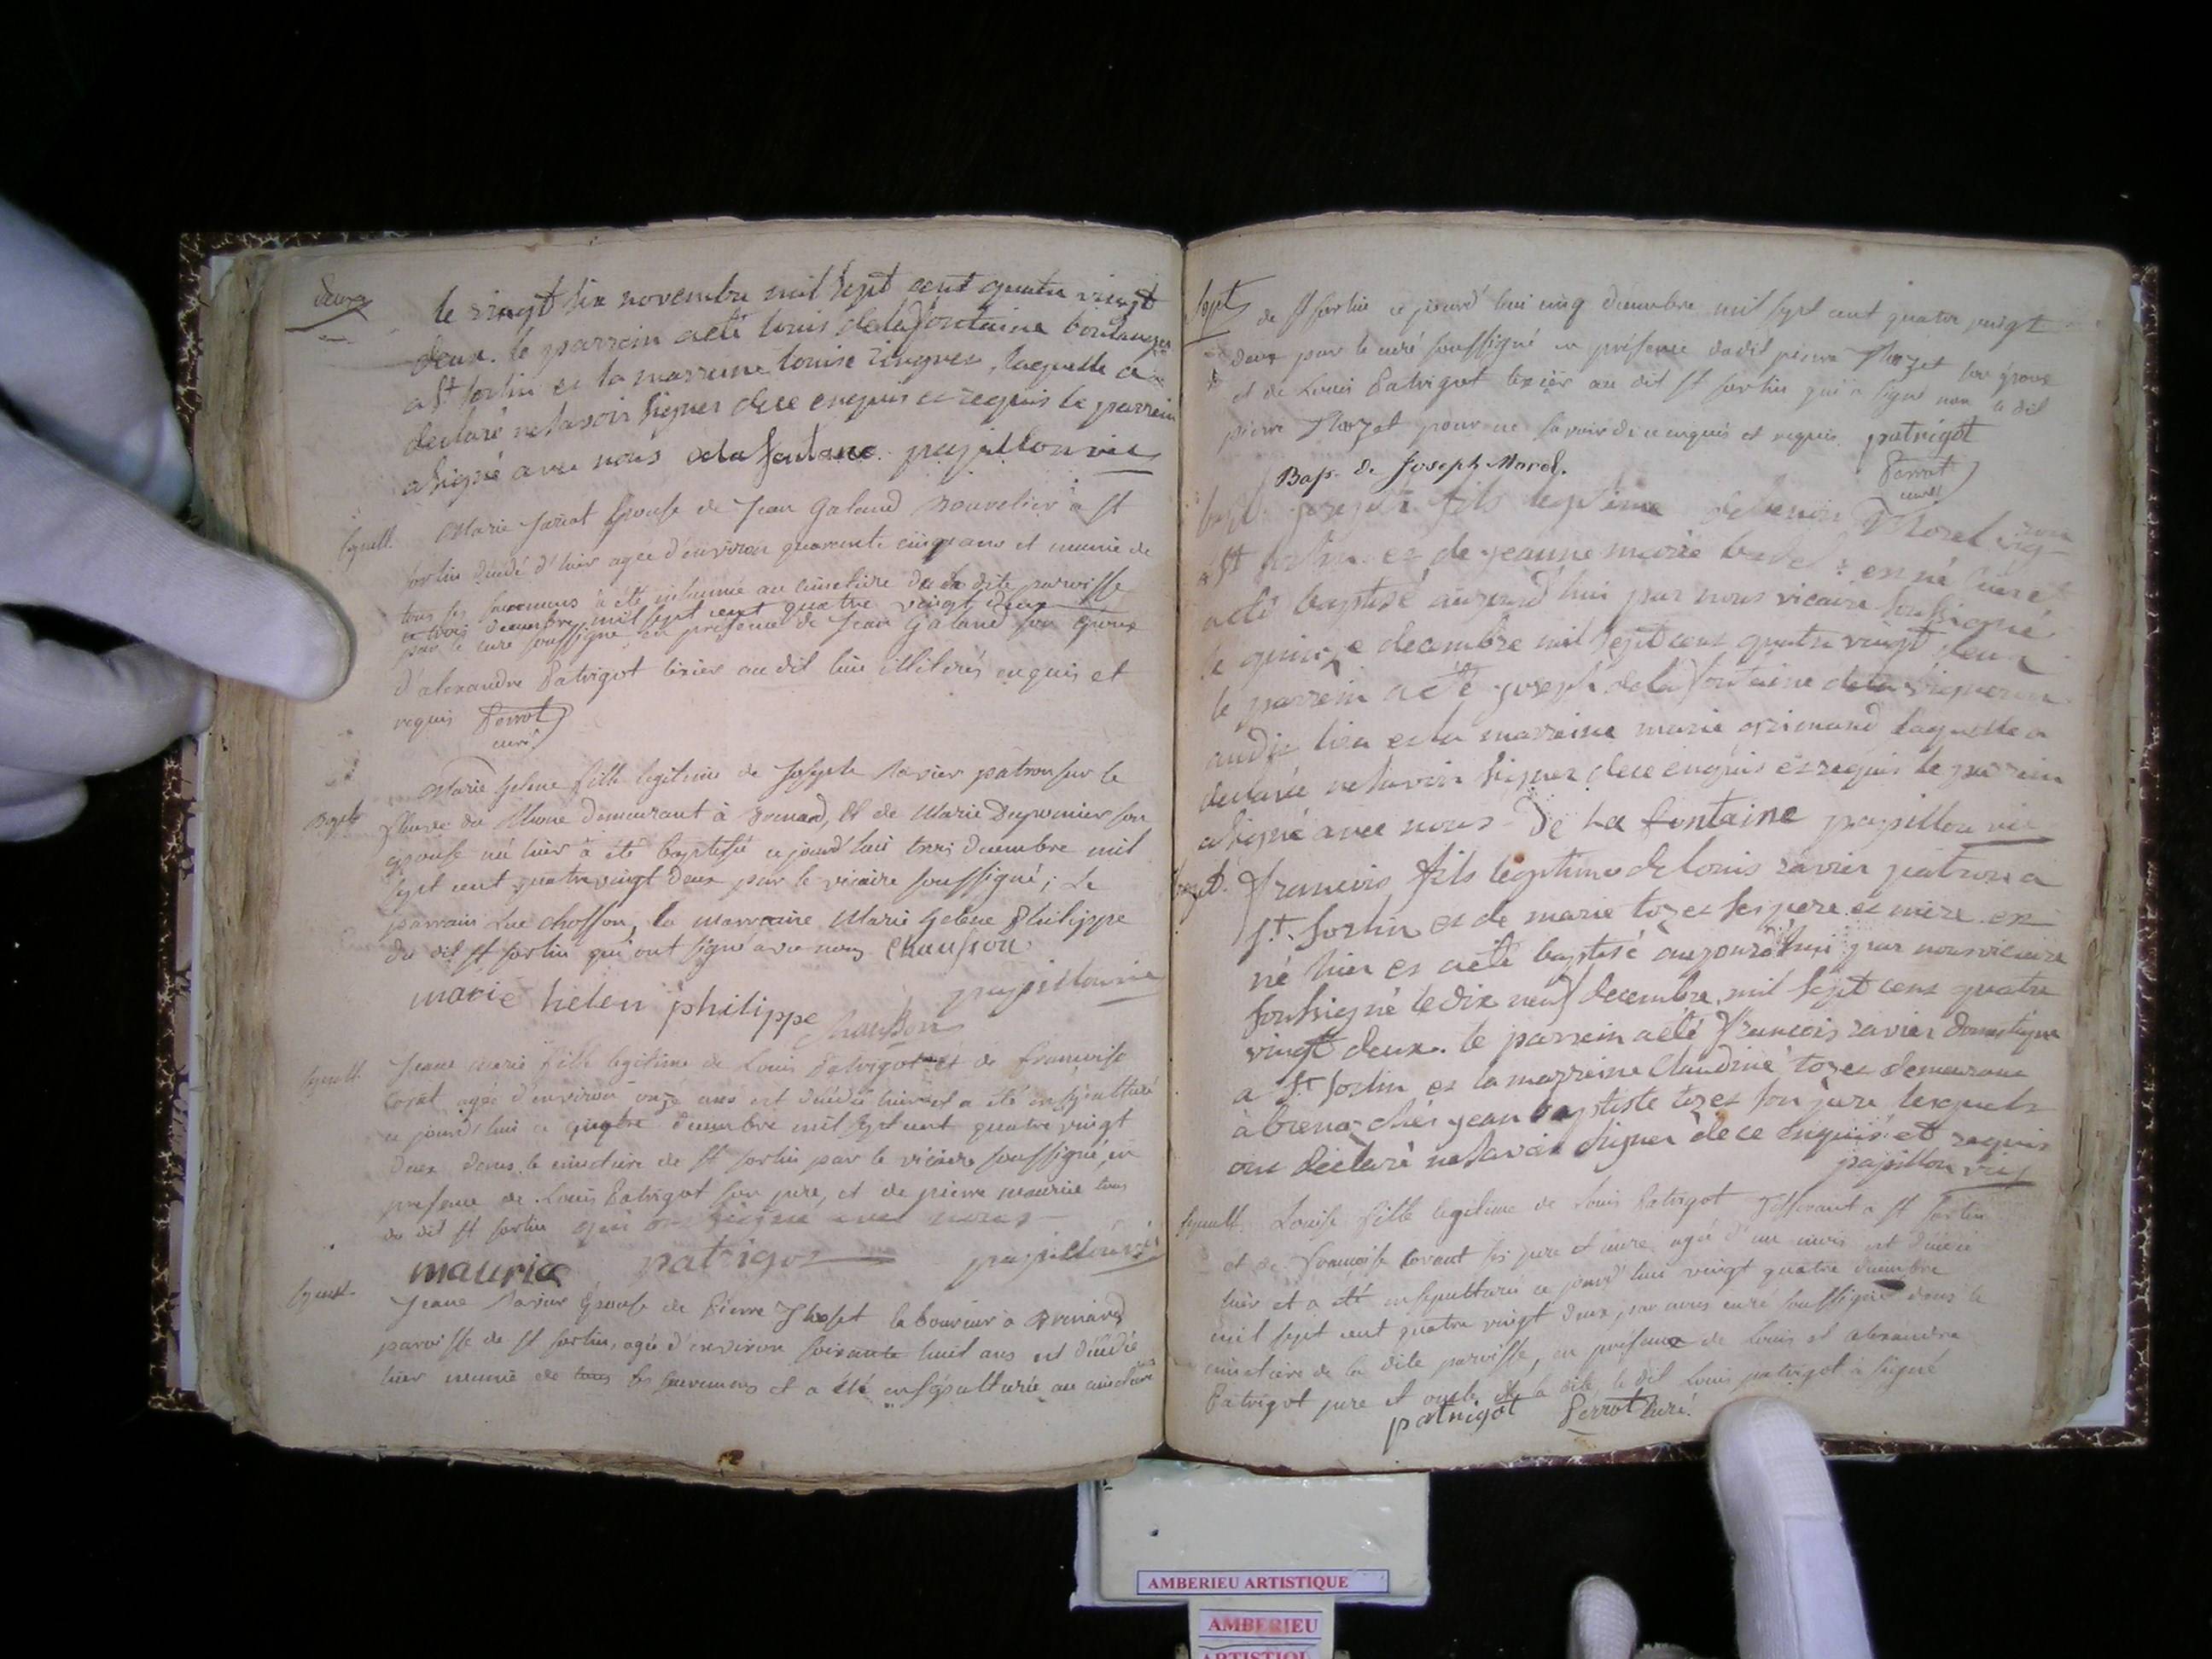 le vingt six novembre mil sept cent quatre vingt
deux. le parrein a eté louis delafontaine boulanger
a St sorlin et la marreine louise, laquelle a
declaré ne savoir signer de ce enquis et requis le parrein
a signé avec nous delafontane papillon vic
sepult. Marie épouse de Jean Galand à St
sorlin décédé d'hier agée d'environ quarente cinq ans et munie de
tous ses sacremens à été inhumée au cimetiere de la dite paroisse
ce trois decembre mil sept cent quatre vingt deux
par le curé soussigné, en présence de Jean Galand son epoux
d'alexandre Patrigot tixier au dit lieu illiterés enquis et
requis Perrot
curé
Marie helene fille legitime de Joseph Ravier patron sur le
Bapt. fleuve du Rhone demeurant à, et de Marie son
epouse né hier à été baptisée ce jourd'hui trois decembre mil
sept cent quatre vingt deux par le vicaire soussigné; Le
parrain Luc chosson, la marraine Marie helene Philippe
du dit st sorlin qui ont signé avec nous Chausson
marie helen philippe papillon vic
Chausson
sepult. Jeanne marie fille legitime de Louis Patrigot et de francoise
agée d'environ onze ans est décédé hier et a été ensepulturé
ce jourd'hui ce quatre decembre mil sept cent quatre vingt
deux dans le cimetiere de st sorlin par le vicaire soussigné, en
presence de Louis Patrigot son pere, et de pierre maurice tous
du dit st sorlin qui ont signé avec nous
maurice patrigot papillon vic
sepult. Jeane Ravier épouse de Pierre laboureur à
paroisse de st sorlin, agée d'environ soixante huit ans est décédée
hier munie de tous les sacremens et a été ensépulturée au cimetiere
sept
de st sorlin ce jourd'hui cinq decembre mil sept cent quatre vingt
deux par le curé soussigné en présence dudit pierre son epoux
et de Louis Patrigot tixier au dit st sorlin qui a signé non le dit
pierre pour ne savoir de ce enquis et requis patrigot
Perrot
curé
Bap. de Joseph Morel.
bapt. joseph fils legitime de Morel
a St sorlin et de jeanne marie est né hier et
a été baptisé aujourd'hui par nous vicaire soussigné
le quinze decembre mil sept cent quatre vingt deux
le parrein a eté joseph delafontaine vigneron
audit lieu et la marreine marie grimand laquelle a
declarée ne savoir signer de ce enquis et requis le parrein
a signé avec nous De La fontaine papillon vic
bapt. francois fils legitime de louis ravier patron a
St. sorlin et de marie tozet ses pere et mere est
né hier et a eté baptisé aujourd'hui par nous vicaire
soussigné le dix neuf decembre mil sept cent quatre
vingt deux. le parrein a eté francois ravier domestique
a St sorlin et la marreine Claudine tozet demeurant
à chés jean baptiste tozet son pere lesquels
ont declaré ne savoir signer de ce enquis et requis
papillon vic
sepult. Louise fille legitime de Louis Patrigot a st sorlin
et de francoise ses pere et mere agée d'un mois est décédé
hier et a été ensepulturée ce jourd'hui vingt quatre decembre
mil sept cent quatre vingt deux par nous curé soussigné dans le
cimetiere de la dite paroisse, en presence de Louis et alexandre
Patrigot pere et oncle de la dite le dit Louis patrigot à signé
patrigot Perrot curé.
AMBERIEU ARTISTIQUE
AMBERIEU
ARTISTIQU